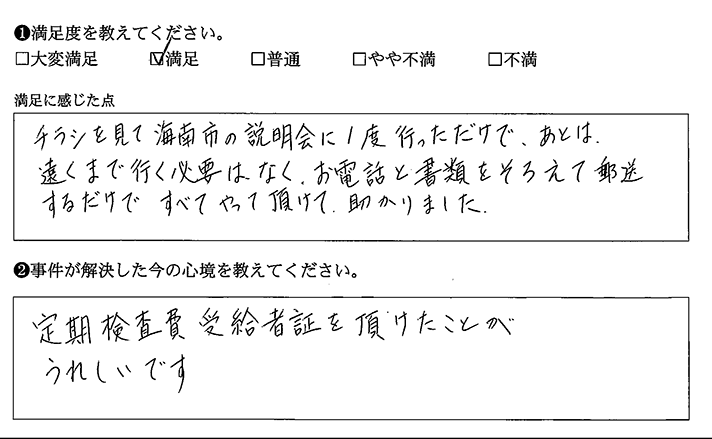 ❶満足度を教えてください。
□大変満足 ☑満足 □普通 □やや不満 □不満
満足に感じた点
チラシを見て海南市の説明会に1度行っただけで、あとは、
遠くまで行く必要はなく、お電話と書類をそろえて郵送
するだけですべてやって頂けて、助かりました。
❷事件が解決した今の心境を教えてください。
定期検査費受給者証を頂けたことが
うれしいです